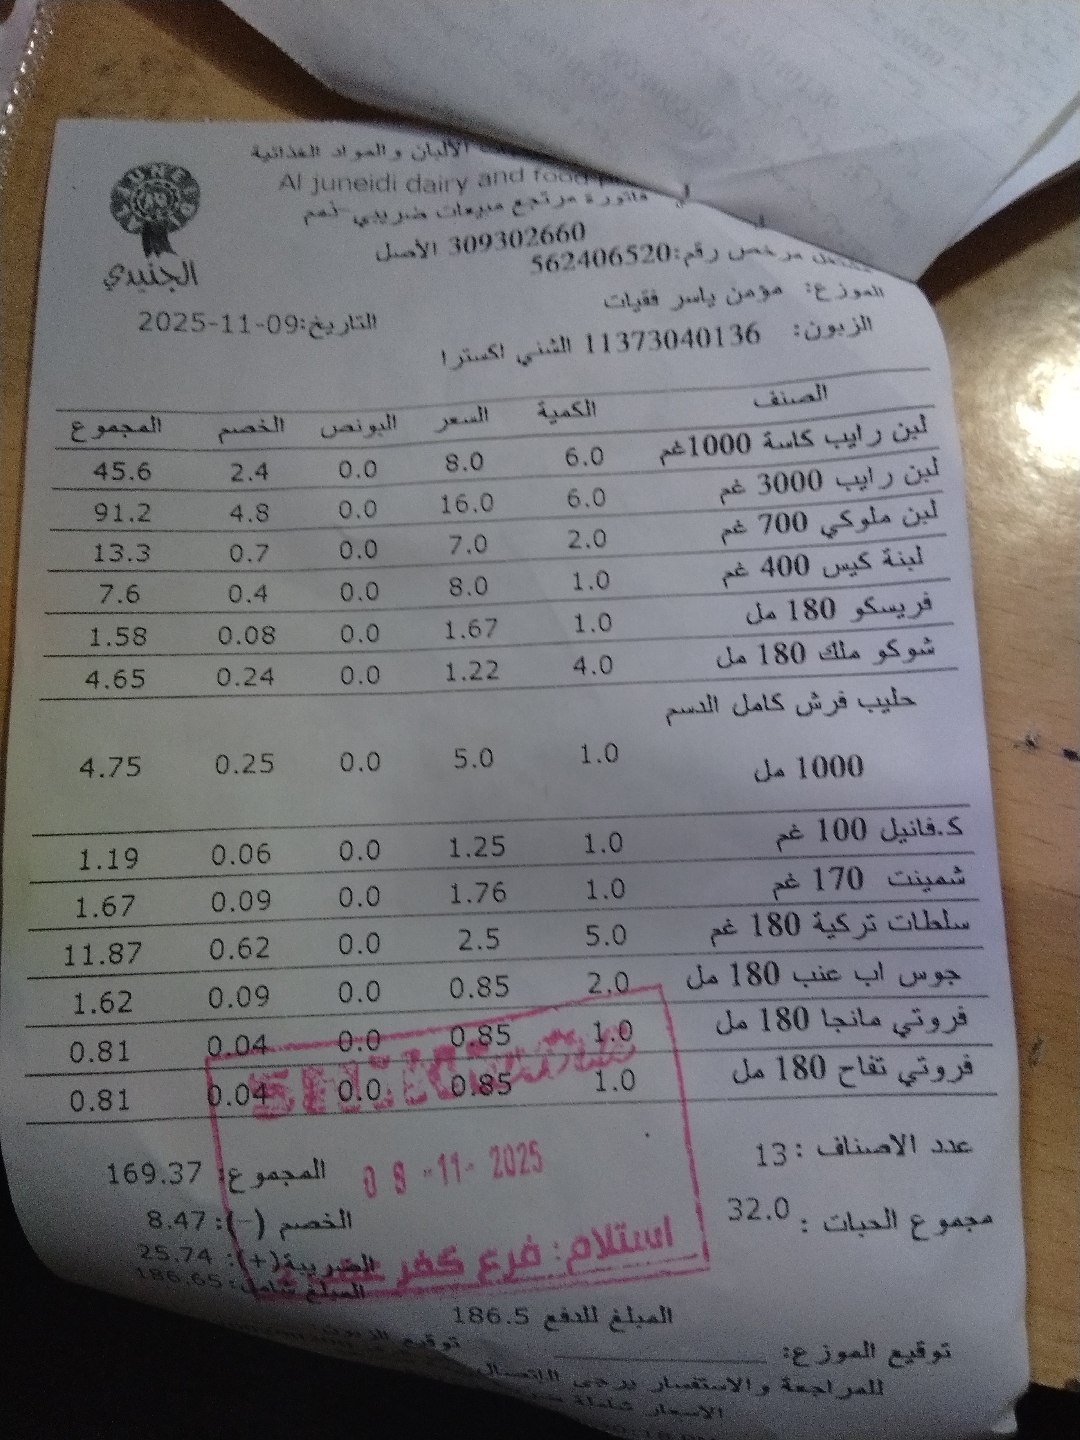 الألبان والمواد الغذائية
Al juneidi dairy and food
JUNEIDI
الجنيدي
فاتورة مرتجع مبيعات ضريبي-ذمم
309302660 الأصل
مشتغل مرخص رقم:562406520
الموزع: مؤمن ياسر فقيات
التاريخ:2025-11-09
الزبون: 11373040136 الشني اكسترا
الصنف الكمية السعر البونص الخصم المجموع
لبن رايب كاسة 1000غم 6.0 8.0 0.0 2.4 45.6
لبن رايب 3000 غم 6.0 16.0 0.0 4.8 91.2
لبن ملوكي 700 غم 2.0 7.0 0.0 0.7 13.3
لبنة كيس 400 غم 1.0 8.0 0.0 0.4 7.6
فريسكو 180 مل 1.0 1.67 0.0 0.08 1.58
شوكو ملك 180 مل 4.0 1.22 0.0 0.24 4.65
حليب فرش كامل الدسم
1000 مل 1.0 5.0 0.0 0.25 4.75
ك.فانيل 100 غم 1.0 1.25 0.0 0.06 1.19
شمينت 170 غم 1.0 1.76 0.0 0.09 1.67
سلطات تركية 180 غم 5.0 2.5 0.0 0.62 11.87
جوس اب عنب 180 مل 2.0 0.85 0.0 0.09 1.62
فروتي مانجا 180 مل 1.0 0.85 0.0 0.04 0.81
فروتي تفاح 180 مل 1.0 0.85 0.0 0.04 0.81
عدد الاصناف : 13
المجموع: 169.37
09 -11- 2025
مجموع الحبات : 32.0
الخصم (-): 8.47
الضريبة(+): 25.74
استلام: فرع كفر
المبلغ شامل: 186.65
المبلغ للدفع 186.5
توقيع الموزع:
توقيع الزبون
للمراجعة والاستفسار يرجى الاتصال
الاسعار شاملة